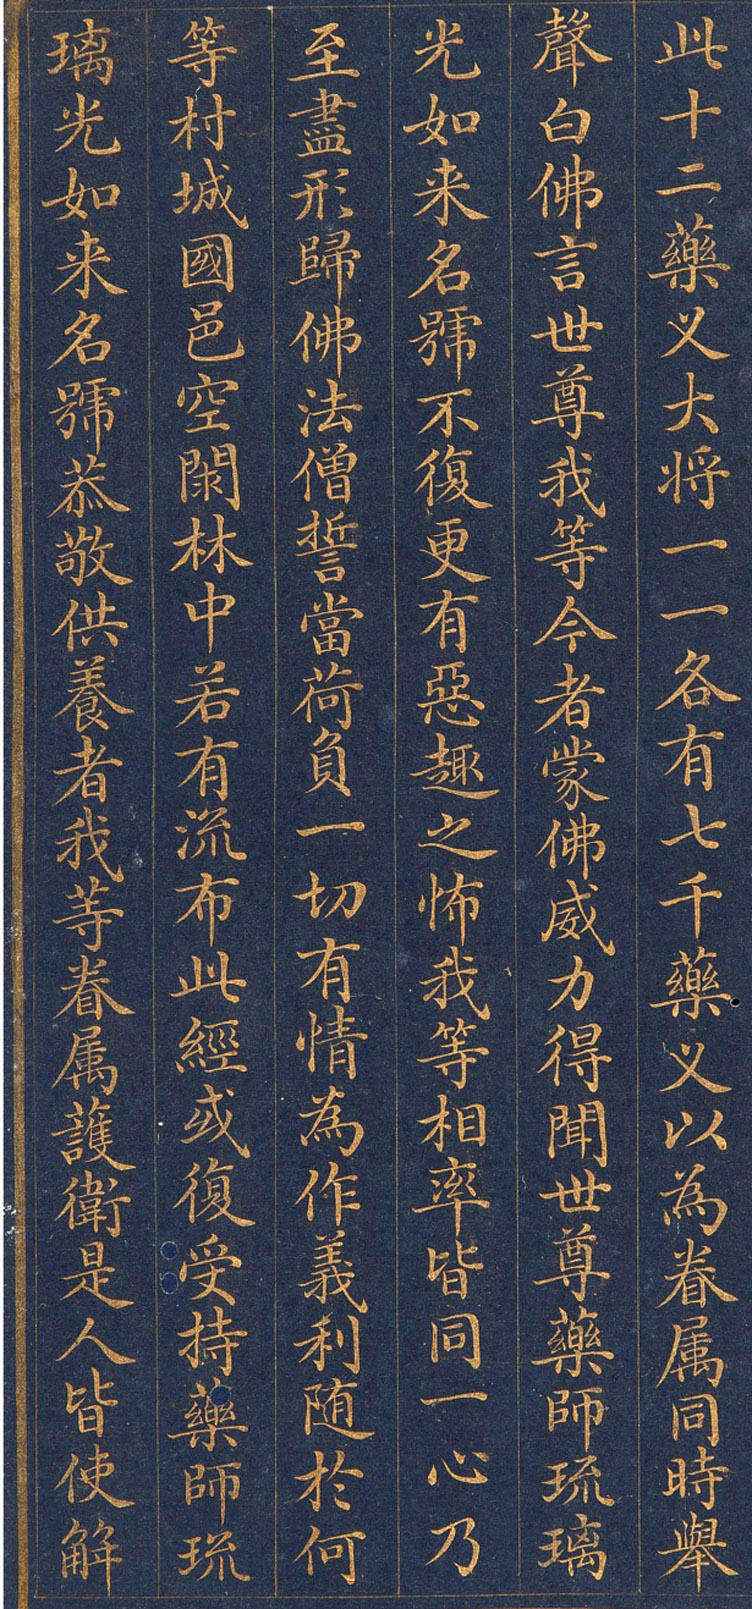 此十二藥叉大将一一各有七千藥叉以為眷属同時舉
聲白佛言世尊我等今者蒙佛威力得聞世尊藥師琉璃
光如来名號不復更有惡趣之怖我等相率皆同一心乃
至盡形歸佛法僧誓當荷負一切有情為作義利随於何
等村城國邑空閑林中若有流布此經或復受持藥師琉
璃光如来名號恭敬供養者我等眷属護衛是人皆使解